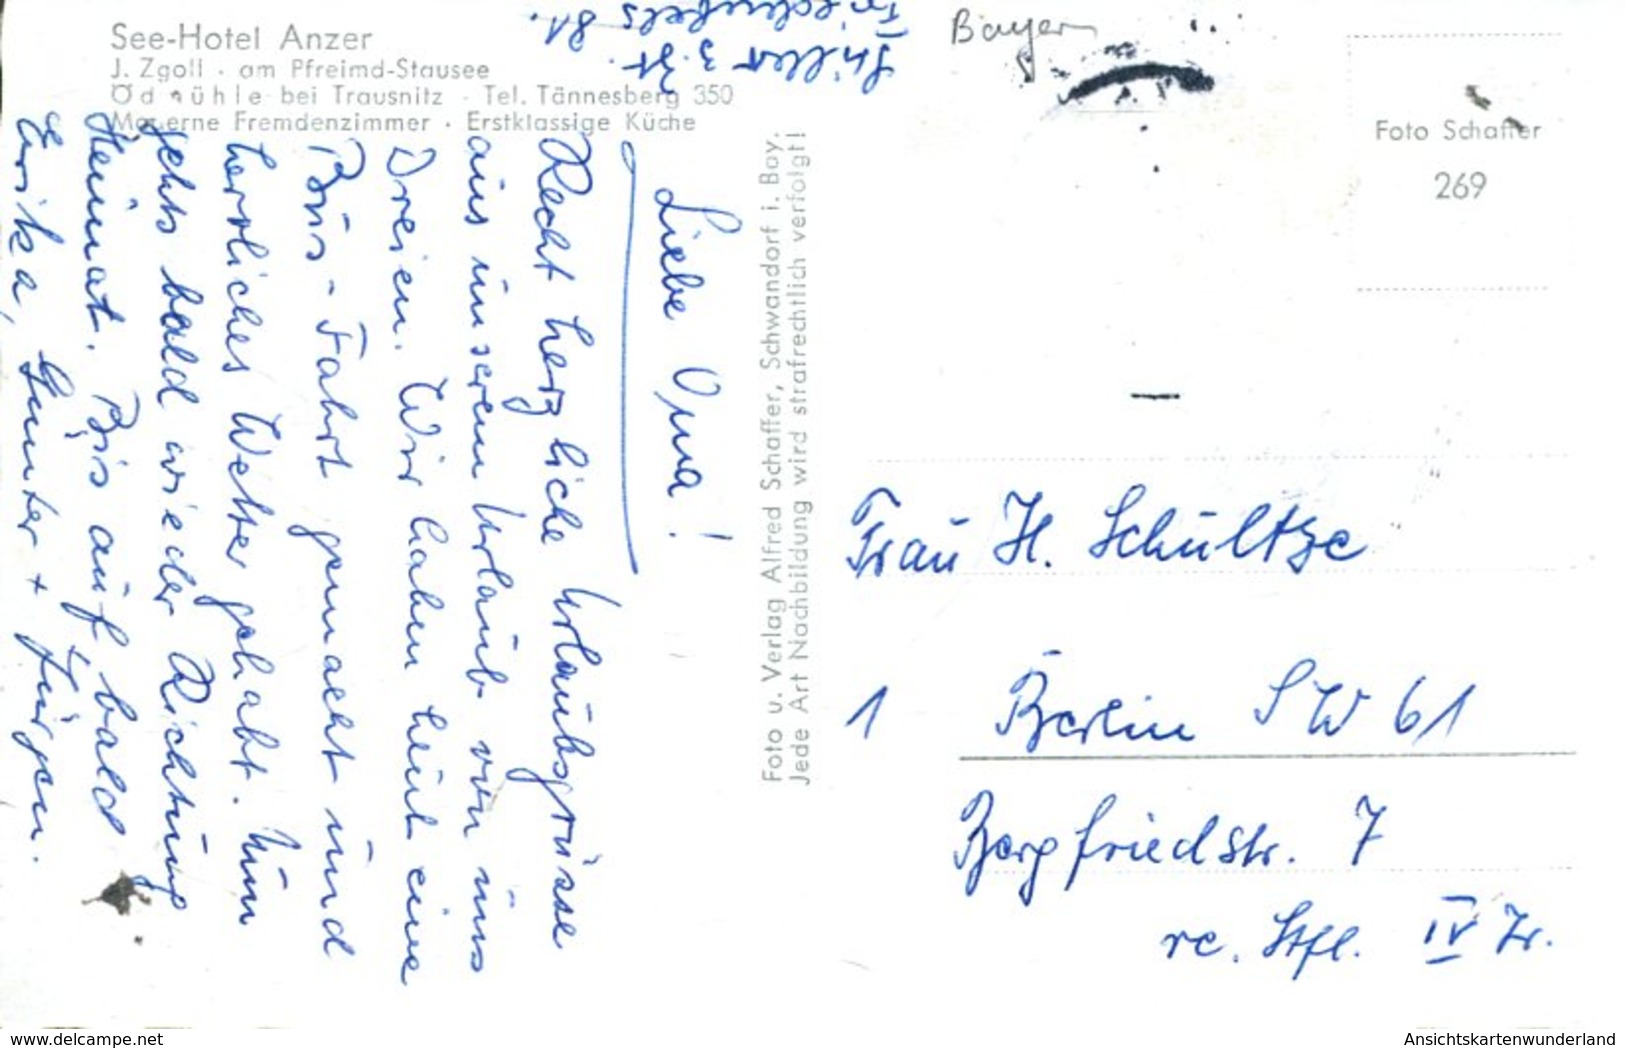 See-Hotel Anzer
J. Zgoll · am Pfreimd-Stausee
Ödmühle bei Trausnitz - Tel. Tännesberg 350
Moderne Fremdenzimmer · Erstklassige Küche
Liebe Oma!
Recht herzliche Urlaubsgrüsse
aus unserem Urlaub von uns
Dreien. Wir haben heut eine
Bus-Fahrt gemacht und
herrliches Wetter gehabt. Nun
gehts bald wieder Richtung
Heimat. Bis auf bald
Erika, Günter + Jürgen.
Foto u. Verlag Alfred Schaffer, Schwandorf i. Bay.
Jede Art Nachbildung wird strafrechtlich verfolgt!
Bayern
Foto Schaffer
269
Frau H. Schultze
1 Berlin SW 61
Bergfriedstr. 7
re. Stfl. IV Tr.
delcampe.net
Ansichtskartenwunderland